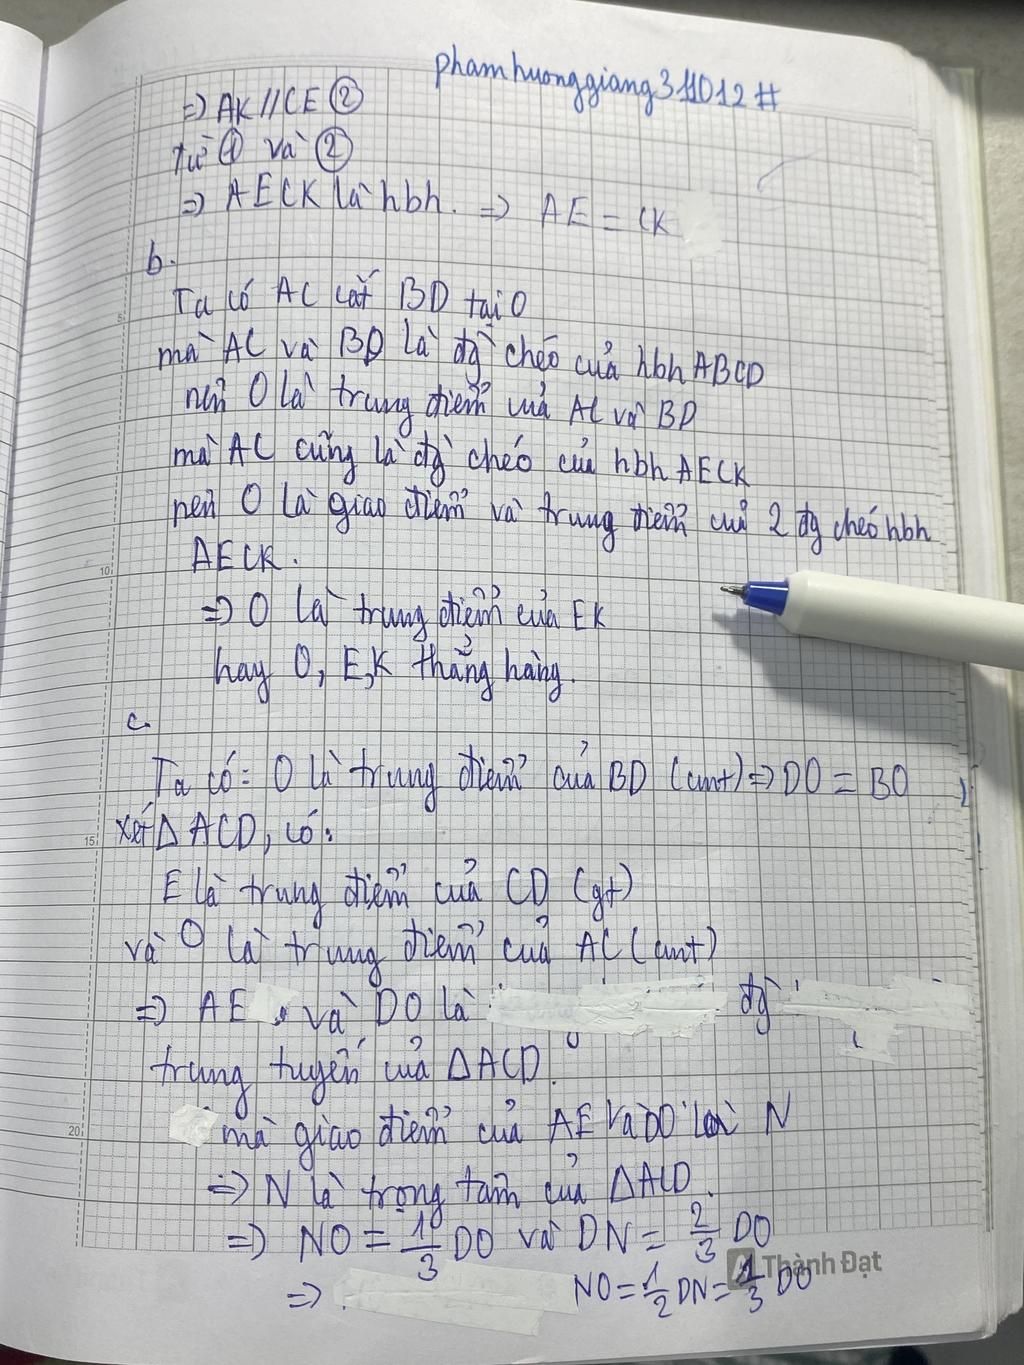 phamhuonggiang311012#
=> AK//CE ②
từ ① và ②
=> AECK là hbh. => AE = CK
b.
Ta có AC cắt BD tại O
mà AC và BD là đg chéo của hbh ABCD
nên O là trung điểm của AC và BD
mà AC cũng là đg chéo của hbh AECK
nên O là giao điểm và trung điểm của 2 đg chéo hbh
AECK.
=> O là trung điểm của EK
hay O, E, K thẳng hàng.
c.
Ta có: O là trung điểm của BD (cmt) => DO = BO
xét Δ ACD, có:
E là trung điểm của CD (gt)
và O là trung điểm của AC (cmt)
=> AE và DO là đg
trung tuyến của ΔACD.
mà giao điểm của AE và DO là N
=> N là trọng tâm của ΔACD.
=> NO = 1/3 DO và DN = 2/3 DO
=> NO = 1/2 DN = 1/3 DO
5
10
15
20
Thành Đạt